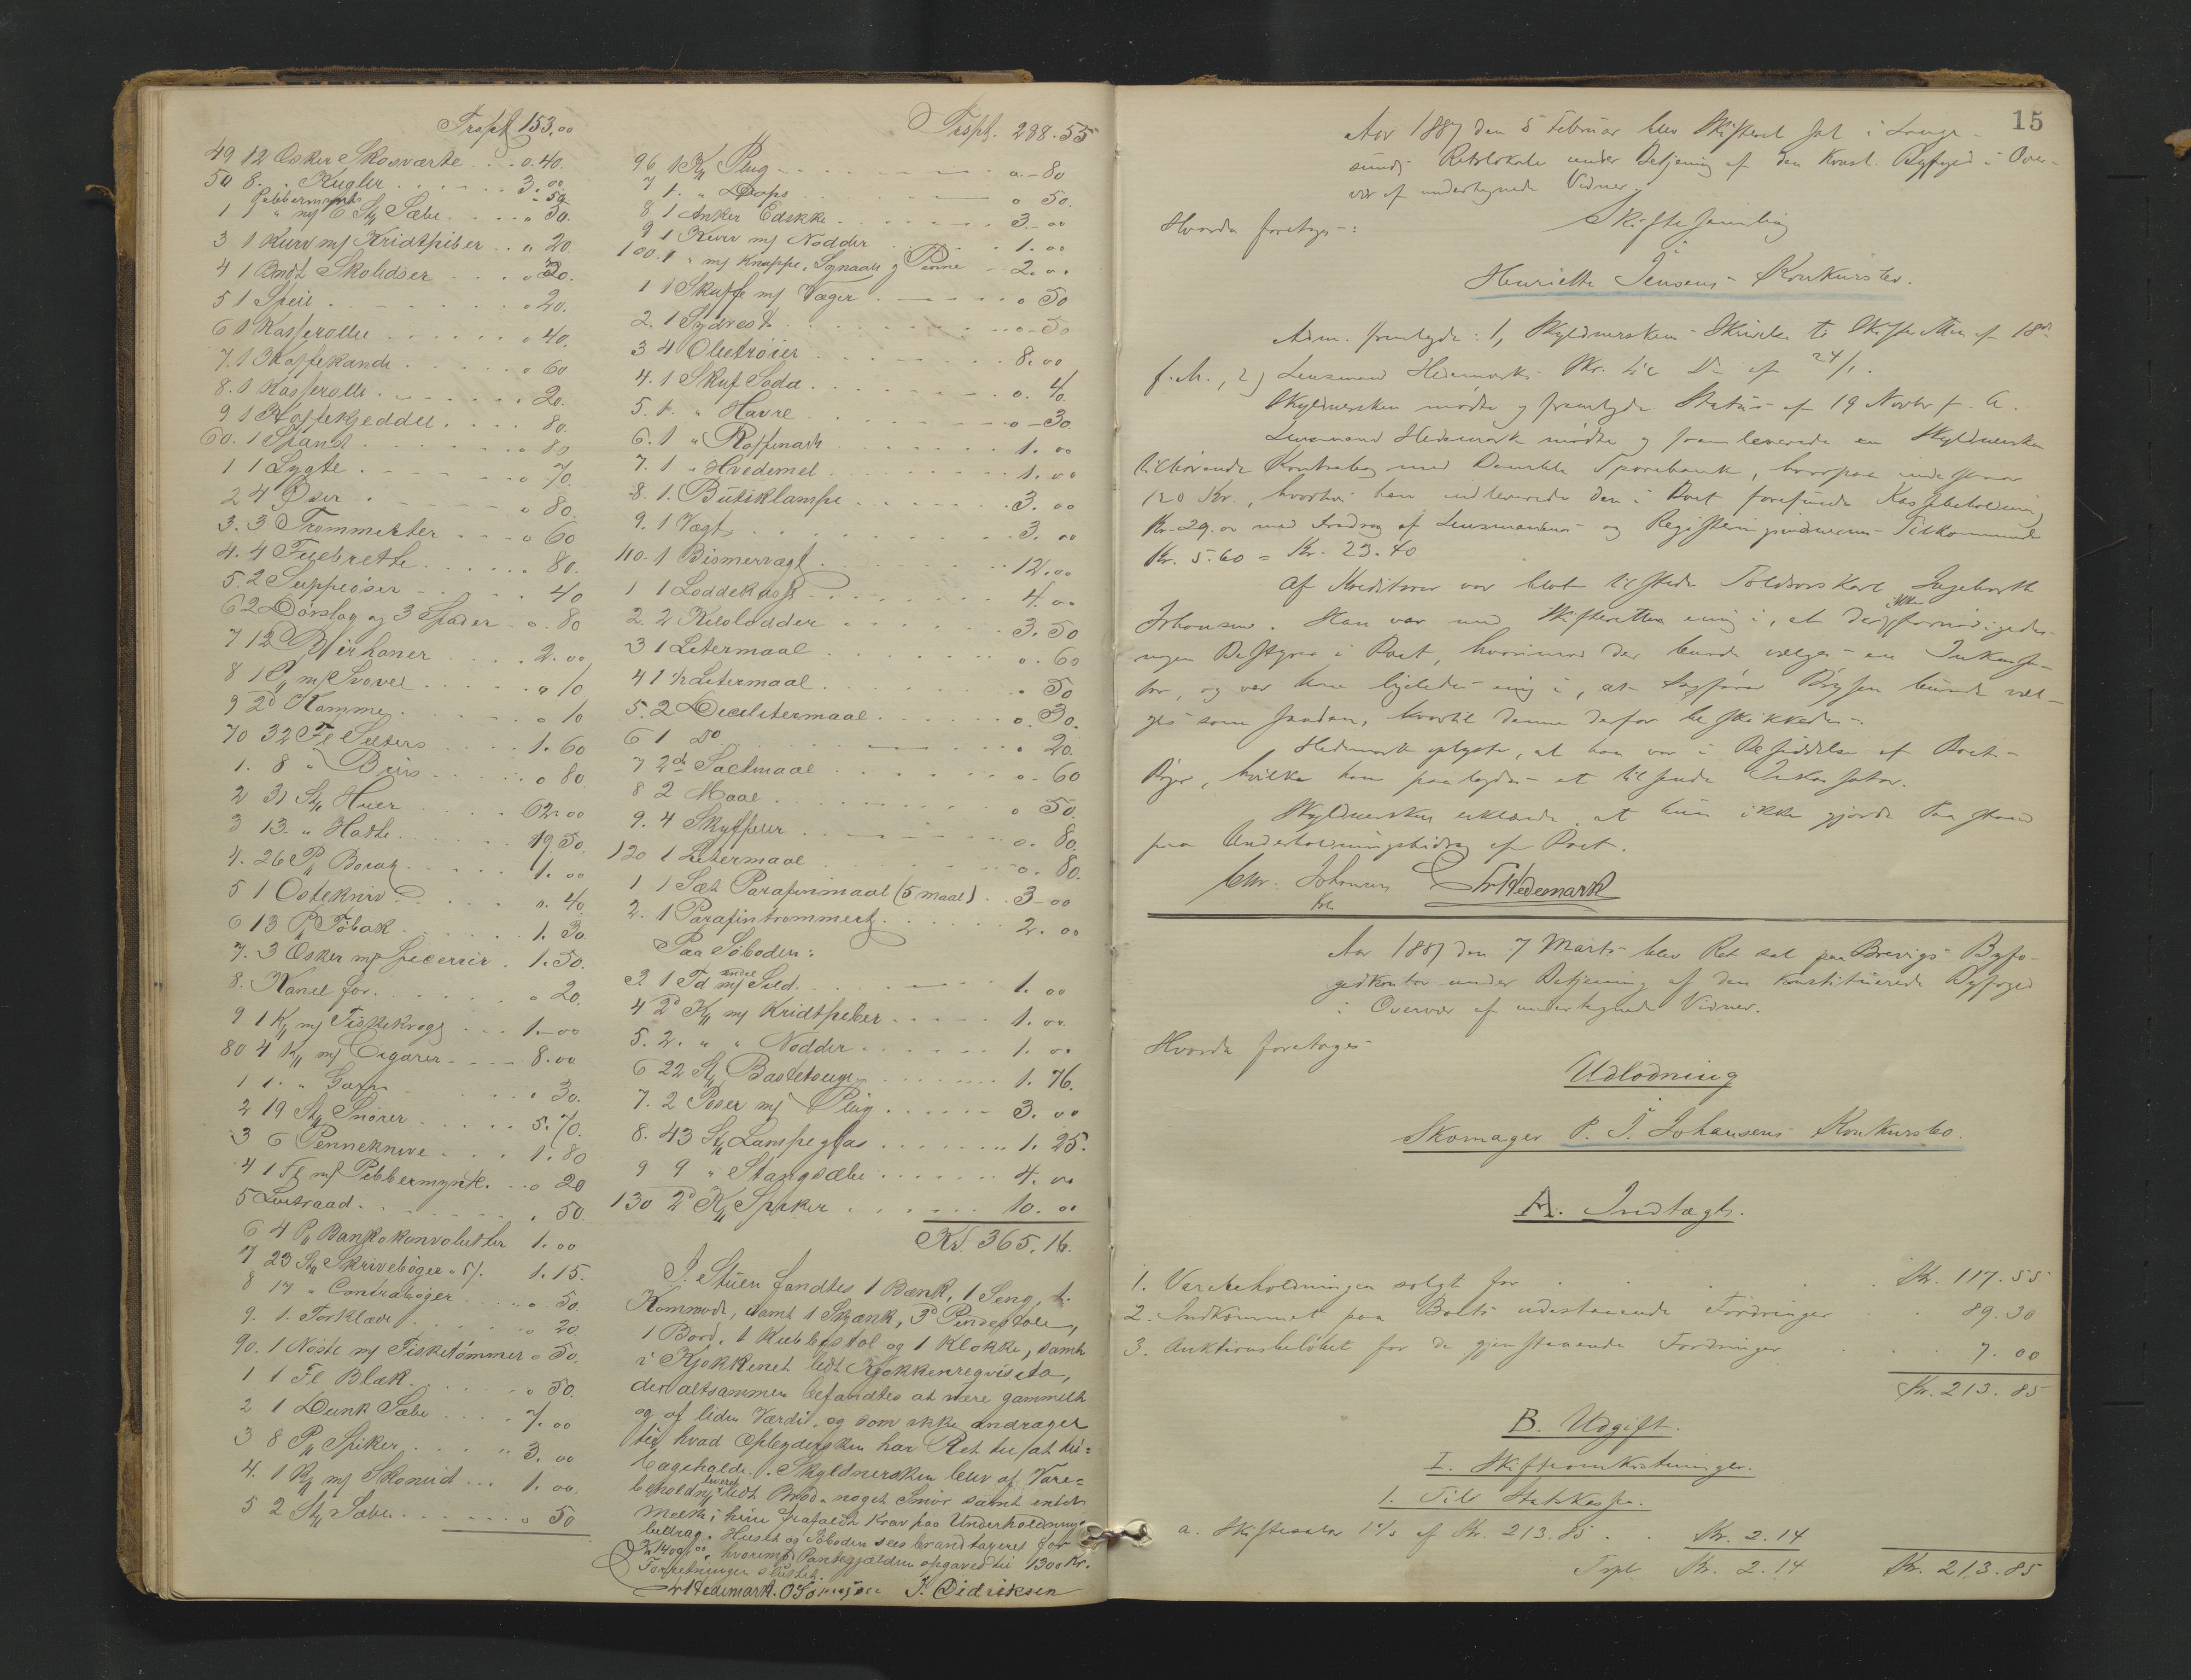 Trspt 153.00
49 12 Æsker Skosværte . . o. 40.
50 8. " Kugler . . . . 3.00
Pebbermynte " 50
1 1 " m/ 6 St Sæbe . . . . o 50.
3 1 Kurv m/ Kridtpiber . . o 20.
4 1 Bndt Skolidser . . . o 20.
5 1 Speil . . . . o 20.
6 1 Kasserolle . . . . o 40.
7. 1 Kaffekande . . . . o 60
8. 1 Kasserolle . . . . 20.
9 1 Kaffekjeddel . . . . 80.
60. 1 Spand . . . . o 80
1 1 Lygte . . . . o 70.
2 4 Øser . . . . o 80.
3. 3 Trommer . . . o 60
4. 4 . . . . 80.
5. 2 Suppeøser . . . . 40
6 2 Dørslag og 3 Spader . o. 80
7 12 haner . . . . 2.00
8 1 P m/ Svovel . . . . o 10
9 2d Kamme . . . . o 10
70 32 Fl Selters . . . . 1. 60
1. 8 " Brus . . . . o 80
2 31 St Huer . . . . 62.00
3 13. " Hatte . . . . 19.50.
4. 26 P Borax . . . . 1. 00
5 1 Ostekniv . . . . o. 40
6 13 P Tobak . . . . 1. 30.
7. 3 Æsker m/ Specerier . 1. 50.
8. Kanel for . . . . o 20.
9 1 K m/ Fiskekroge . . . 1.-00
80 4 K m/ Cigarer . . . 8.00
1 1. " Garn . . . . o 30.
2 19 St Snører . . . . 5.70.
3 6 Penneknive . . . 1. 80
4 1 Fl m/ Pebbermynte . . o 20
5 . . . . . 50.
6 4 P Bankokonvolutter 1.00
7 23 St Skrivebøger a 5/. 1.15.
8 17 " Contrabøger . . . o 50.
9. 1. Forklæde . . . o 20
90. 1 Nøste m/ Fisketømmer o 50.
1 1 Fl Blæk . . . . o 50.
2 1 Dunk Sæbe . . . . 7.00
3 8 P Spiker . . . . 3. 00
4. 1 K m/ Skonud . . . 1. 00.
5 2 St Sæbe . . . . o 50
Trspt. 238.55
96 1 K Plug . . . . o.-80
7 1. " Drops . . . . o 50.
8 1 Anker Edikke . . . . 3.-00
9 1 Kurv m/ Nødder . . . . 1.00
100. 1 " m/ Knappe, Synaale og . . 2.00
1 1 Skuffe m/ Væger . . . . o 50
2. 1 Sydvest . . . . o-50
3 4 Olietrøier . . . . 8.00
4. 1 Skuf Soda . . . . o. 40.
5. 1. " Havre . . . . o-30
6. 1 " Raffinade . . . . 1. 00
7. 1 " Hvedemel . . . . 1.00
8. 1. Butiklampe . . . . 3. 00
9. 1 Vægt . . . . 3. 00
110. 1 Bismervægt . . . . 12.00
1 1 Loddekasse . . . . 4.00
2. 2 Kilolodder . . . . 3.50
3 1 Litermaal . . . . o. 60
4 1 1/2 Litermaal . . . . o 50
5. 2 Decilitermaal . . . . o. 30.
6 1 do . . . . o 20.
7 2d Saltmaal . . . . o. 60
8 2 Maal . . . . o 50.
9. 4 Skyffeler . . . . o. 80.
120 1 Litermaal . . . . o. 80.
1 1 Sæt Parafinmaal (5 maal) . . 3-00
2. 1 Parafintrommel . . . . 2.00
Paa Søboden:
3. 1 Td m/ endel Sild . . . . 1. 00
4 2d K m/ Kridtpiber . . . . 1.00.
5. 2. " " Nødder . . . . 1. 00
6 22 St Bastetouge . . . . 1. 76.
7. 2 Poser m/ Plug . . . . 3. 00
8. 43 St Lampeglas . . . . 1. 25.
9 9 " Stangsæbe . . . . 4. 00
130 2d K Spiker . . . . 10. 00
Kr. 365.16.
I Stuen fandtes 1 Bænk, 1 Seng, 1.
Kommode, samt 1 Skjænk, 3d Pindestole,
1 Bord, 1 Kubbestol og 1 Klokke, samt
i Kjøkkenet lidt Kjøkkenreqvisita,
der altsammen befandtes at være gammelt
og af liden Værdi, og som ikke androges
til hvad Oplyndersken har Ret til at til=
bageholde. Skyldnersken blev af Vare=
beholdn/ leveret lidt Brød, noget Smør samt endel
Melk; hun frafaldt Krav paa Underholdnings
bidrag. Huset og Søboden sees brandtaxeret for
Kr 1400,00, hvorimod Pantegjælden opgaves til 1300 Kr.
Forretningen sluttet.
Hedemark. O Simonsen J. Didriksen
15
Aar 1887 den 5 Februar blev Skifteret sat i Lange-
sunds Retslokale under Betjening af den Konst. Byfoged i Over-
vær af undertegnede Vidner.
Hvorda foretoges:
Skiftesamling
i
Henriette Jensens Konkursbo.
Adm. fremlagde: 1, Skyldnerskens Skrivelse til Skifteretten af 18de
f. M., 2) Lensmand Hedemarks Skr. til Do af 24/1.
Skyldnersken mødte og fremlagde Status af 19 Novbr f. A.
Lensmand Hedemark mødte og fremleverede en Skyldnersken
tilhørende Kontrabog med Bamble Sparebank, hvorpaa indestaar
120 Kr., hvorhos han indleverede den i Boet forefundne Kassebeholdning
Kr. 29.00 med Fradrag af Lensmandens og Registreringsvidnernes Tilkommende
Kr. 5.60 = Kr. 23.40
Af Kreditorer var blot tilstede Toldoverskarl Ingebreth
Johansen. Han var med Skifteretten enig i, at der ikke fornødigedes
nogen Bestyrer i Boet, hvorimod der burde vælges en Inkassa-
tor, og var han ligeledes enig i, at Sagfører Bøysen burde væl-
ges som saadan, hvortil denne derfor beskikkedes.
Hedemark oplyste, at han var i Besiddelse af Boets
Bøger, hvilke han paalagdes at tilsende Inkassator.
Skyldnersken erklærede at hun ikke gjorde Paastand
paa Underholdningsbidrag af Boet.
Chr. Johansen Hedemark
Aar 1887 den 7 Marts blev Ret sat paa Brevigs Byfo-
gedkontor under Betjening af den konstituerede Byfoged
i Overvær af undertegnede Vidner.
Hvorda foretoges
Udlodning
i
Skomager P. J. Johansens Konkursbo.
A. Indtægt.
1. Varebeholdningen solgt for . . . . Kr. 117.55
2. Indkommet paa Boets udestaaende Fordringer . . 89.30
3. Auktionsbeløbet for de gjenstaaende Fordringer . . 7.00
Kr. 213.85
B. Udgift.
I. Skifteomkostninger.
1. Til Statskassen.
a. Skifteafgift 1% af Kr. 213.85 . . Kr. 2.14
Trpt Kr. 2.14 Kr. 213.85